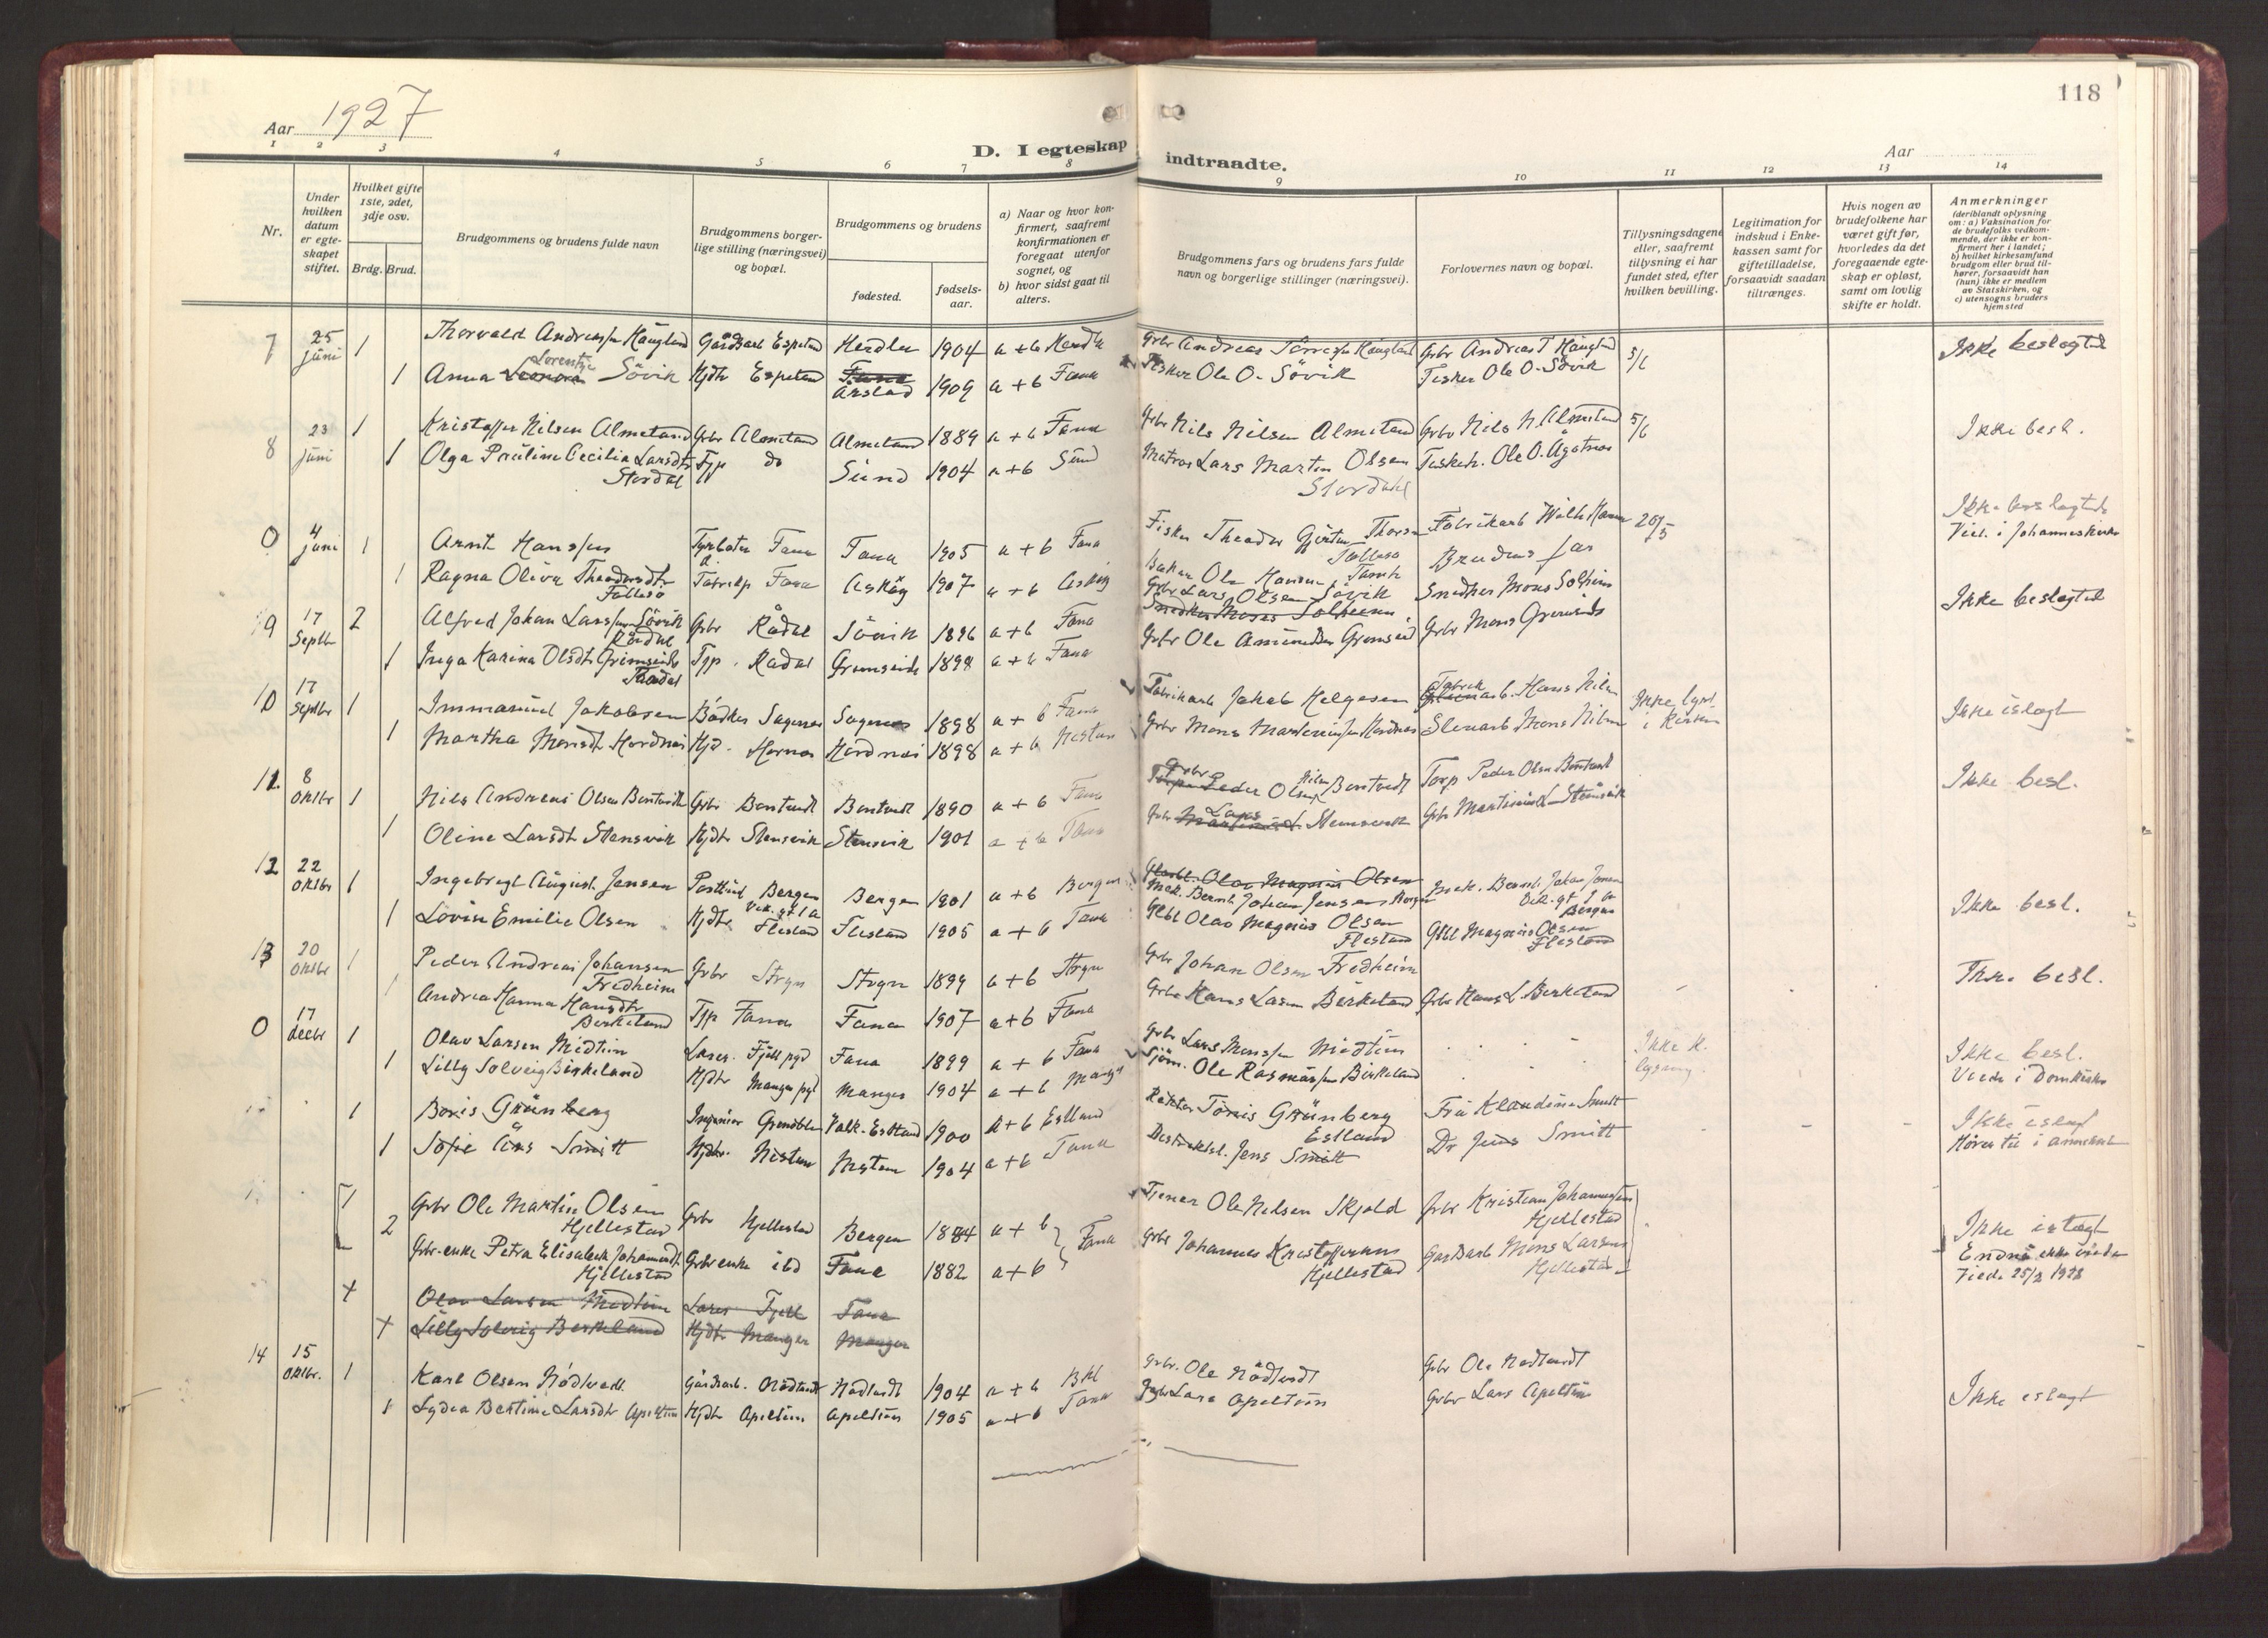 118
Aar 1927
D. I egteskap indtraadte.
Aar
1 2 3 4 5 6 7 8 9 10 11 12 13 14
Nr.
Under hvilken datum er egteskapet stiftet.
Hvilket gifte 1ste, 2det, 3dje osv.
Brdg. Brud.
Brudgommens og brudens fulde navn
Brudgommens borgerlige stilling (næringsvei) og bopæl.
Brudgommens og brudens
fødested.
fødsels-aar.
a) Naar og hvor konfirmert, saafremt konfirmationen er foregaat utenfor sognet, og
b) hvor sidst gaat til alters.
Brudgommens fars og brudens fars fulde navn og borgerlige stillinger (næringsvei).
Forlovernes navn og bopæl.
Tillysningsdagene eller, saafremt tillysning ei har fundet sted, efter hvilken bevilling.
Legitimation for indskud i Enkekassen samt for giftetilladelse, forsaavidt saadan tiltrænges.
Hvis nogen av brudefolkene har været gift før, hvorledes da det foregaaende egteskap er opløst, samt om lovlig skifte er holdt.
Anmerkninger
(deriblandt oplysning om: a) Vaksination for de brudefolks vedkommende, der ikke er konfirmert her i landet;
b) hvilket kirkesamfund brudgom eller brud tilhører, forsaavidt han (hun) ikke er medlem av Statskirken, og
c) utensogns bruders hjemsted
7 25 juni 1 Thorvald Andreassen Haugland Gårdsarb Espeland Herdla 1904 a + b Herdla Grbr Andreas Haugland Grbr Andreas T Haugland 5/6 Ikke beslegted
1 Anna Leonora Lorentze Søvik Hjdtr Espeland Fana Årstad 1909 a + b Fana Fisker Ole O. Søvik Fisker Ole O. Søvik
8 23 juni 1 Kristoffer Nilsen Almeland Grbr Almeland Almeland 1889 a + b Fana Grbr Nils Nilsen Almeland Grbr Nils N. Almeland 5/6 Ikke besl.
1 Olga Pauline Cecilia Larsdtr Stordal Tjp do Sund 1904 a + b Sund Matros Lars Martin Olsen Stordahl Ole O. Ågotnes
0 4 juni 1 Arnt Hanssen Fana Fana 1905 a + b Fana Fisker Theodor 20/5 Ikke beslegted
Viel. i Johanneskirken
1 Ragna Oliva Theodorsdtr Fana Askøy 1907 a + b Askøy Baker Ole Hansen Brudens far
9 17 Septbr 2 Alfred Johan Larssen Søvik Rådal Grbr Rådal Søvik 1896 a + b Fana Grbr Lars Olsen Søvik Snedker Mons Solheim Snedker Mons Solheim Ikke beslegted
1 Inga Karina Olsdtr Grimseid Raadal Tjp. Rådal Grimseid 1898 a + b Fana Grbr Ole Amundsen Grimseid Grbr Mons Grimseid
10 17 Septbr 1 Immanuel Jakobsen Bødker Sagenes Sagenes 1898 a + b Fana Fabrikarb Jakob Helgesen Fabrikarb. Hans Nilsen Ikke lyst i kirken Ikke islegt
1 Martha Monsdtr Hordnes Hjd. Hornes Hordnes 1898 a + b Nestun Grbr Mons Martinussen Hordnes Stenarb Mons Nilsen
11. 8 Oktbr 1 Nils Andreas Olsen Bontveit Grbr Bontvedt Bontvedt 1890 a + b Fana Grbr Olsen Bontvedt Peder Olsen Bontvedt Ikke besl.
1 Oline Larsdtr Stensvik Hjdtr Stensvik Stensvik 1901 a + b Fana Grbr Lars Stensvik Grbr Martinius L Stensvik
12 22 Oktbr 1 Ingebregt August Jensen Postbud Bergen Bergen 1901 a + b Bergen Olav Magnus Olsen
Mek. Bernh. Johan Jensen Bergen Mek. Bernh. Johan Jensen Bergen Ikke besl.
1 Lovise Emilie Olsen Hjdtr Flesland Flesland 1905 a + b Fana Olav Magnus Olsen Flesland Magnus Olsen Flesland
13 20 Oktbr 1 Peder Andreas Johansen Fredheim Grbr Stryn Stryn 1899 a + b Stryn Grbr Johan Olsen Fredheim Ikke besl.
1 Andrea Hanna Hansdtr Birkeland Tjp Fana Fana 1907 a + b Fana Grbr Hans Larsen Birkeland Grbr Hans L. Birkeland
0 17 decbr 1 Olav Larsen Midttun Lærer. Fjell pgd Fana 1899 a + b Fana Grbr Lars Monssen Midttun Ikke k. lysning Ikke besl.
Viede i Domkirken
1 Lilly Solveig Birkeland Hjdtr Manger pgd Manger 1904 a + b Manger Sjøm. Ole Rasmussen Birkeland
1 Boris Grünberg Ingeniør Grenoble Valk. Estland 1900 a + b Estland Rektor Tõnis Grünberg Estland Fru Klaudine Smitt Ikke i slegt
1 Sofie Smitt Hjdtr. Nestun Nestun 1904 a + b Fana Distriktsl. Jens Smitt Dr Jens Smitt
1 Grbr Ole Martin Olsen Hjellestad Grbr Hjellestad Bergen 1884 a + b Fana Tjener Ole Nilsen Skjold Grbr Kristian Johannessen Hjellestad Ikke i slegt
Endnu ikke viede
Viede 25/2 1928
2 Grbr.enke Petra Elisabeth Johannesdtr Hjellestad Grbr enke ibd Fana 1882 a + b Grbr Johannes Kristoffersen Hjellestad Gårdsarb Mons Larsen Hjellestad
+ Olav Larsen Midttun Lærer Fjell Fana
+ Lilly Solveig Birkeland Hjdtr Manger Manger
14 15 Oktbr. 1 Karl Olsen Nødtvedt Gårdsarb. Nødtvedt Nødtvedt 1904 a + b Grbr. Ole Nødtvedt Grbr Ole Nødtvedt Ikke i slegt
1 Lydia Bertine Larsdtr Apeltun Hjdtr Apeltun Apeltun 1905 a + b Fana Grbr Lars Apeltun Grbr Lars Apeltun